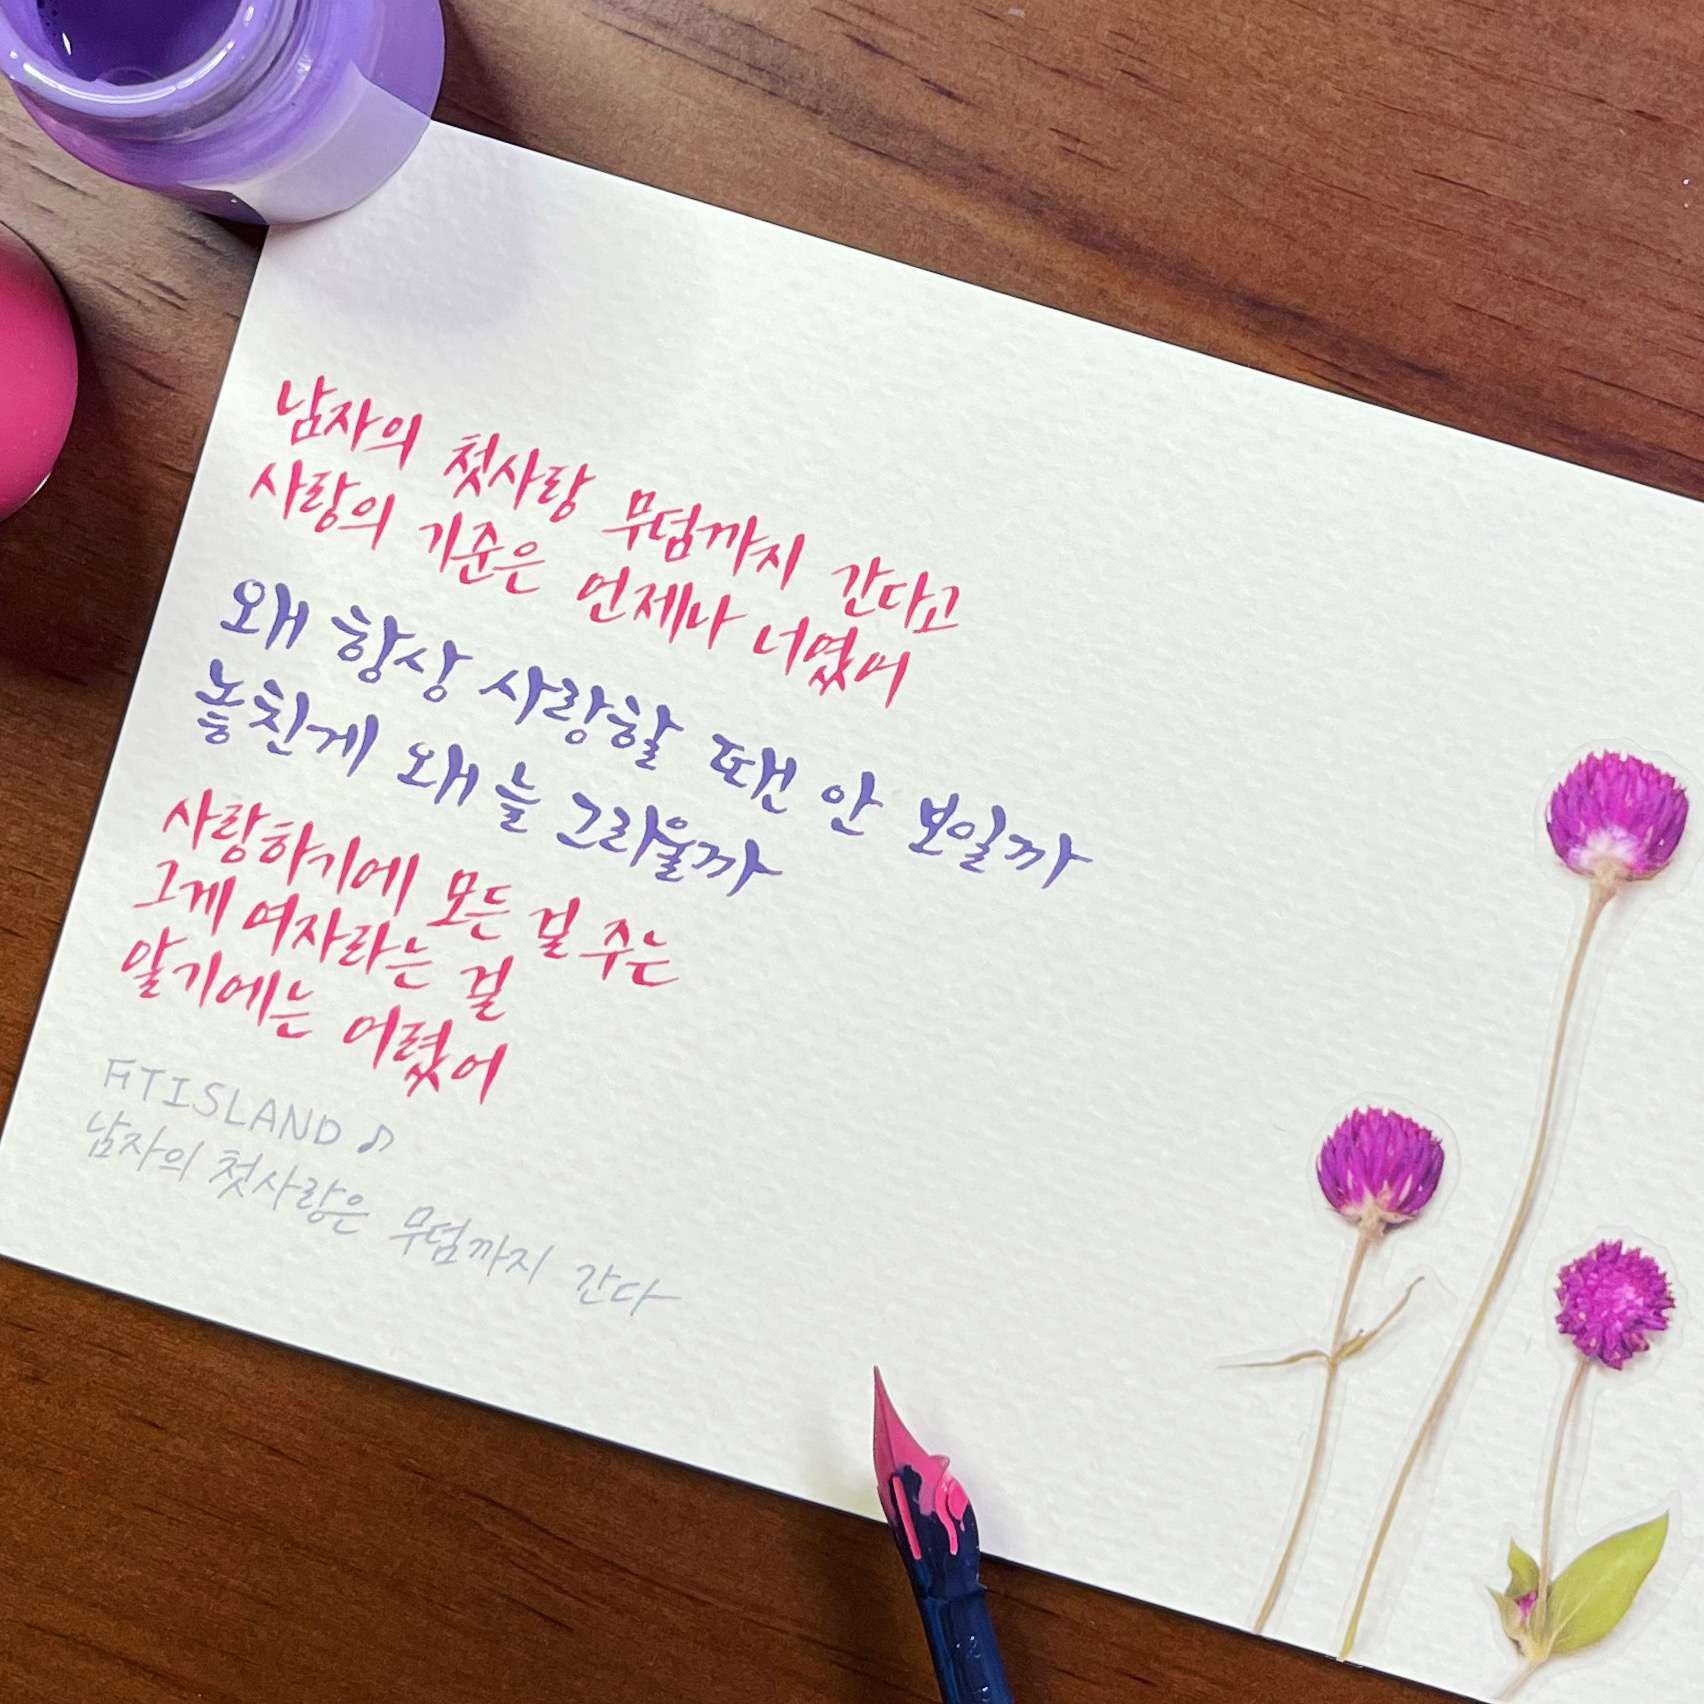 남자의 첫사랑 무덤까지 간다고
사랑의 기준은 언제나 너였어
왜 항상 사랑할 땐 안 보일까
놓친게 왜 늘 그리울까
사랑하기에 모든 걸 주는
그게 여자라는 걸
알기에는 어렸어
FTISLAND♪
남자의 첫사랑은 무덤까지 간다